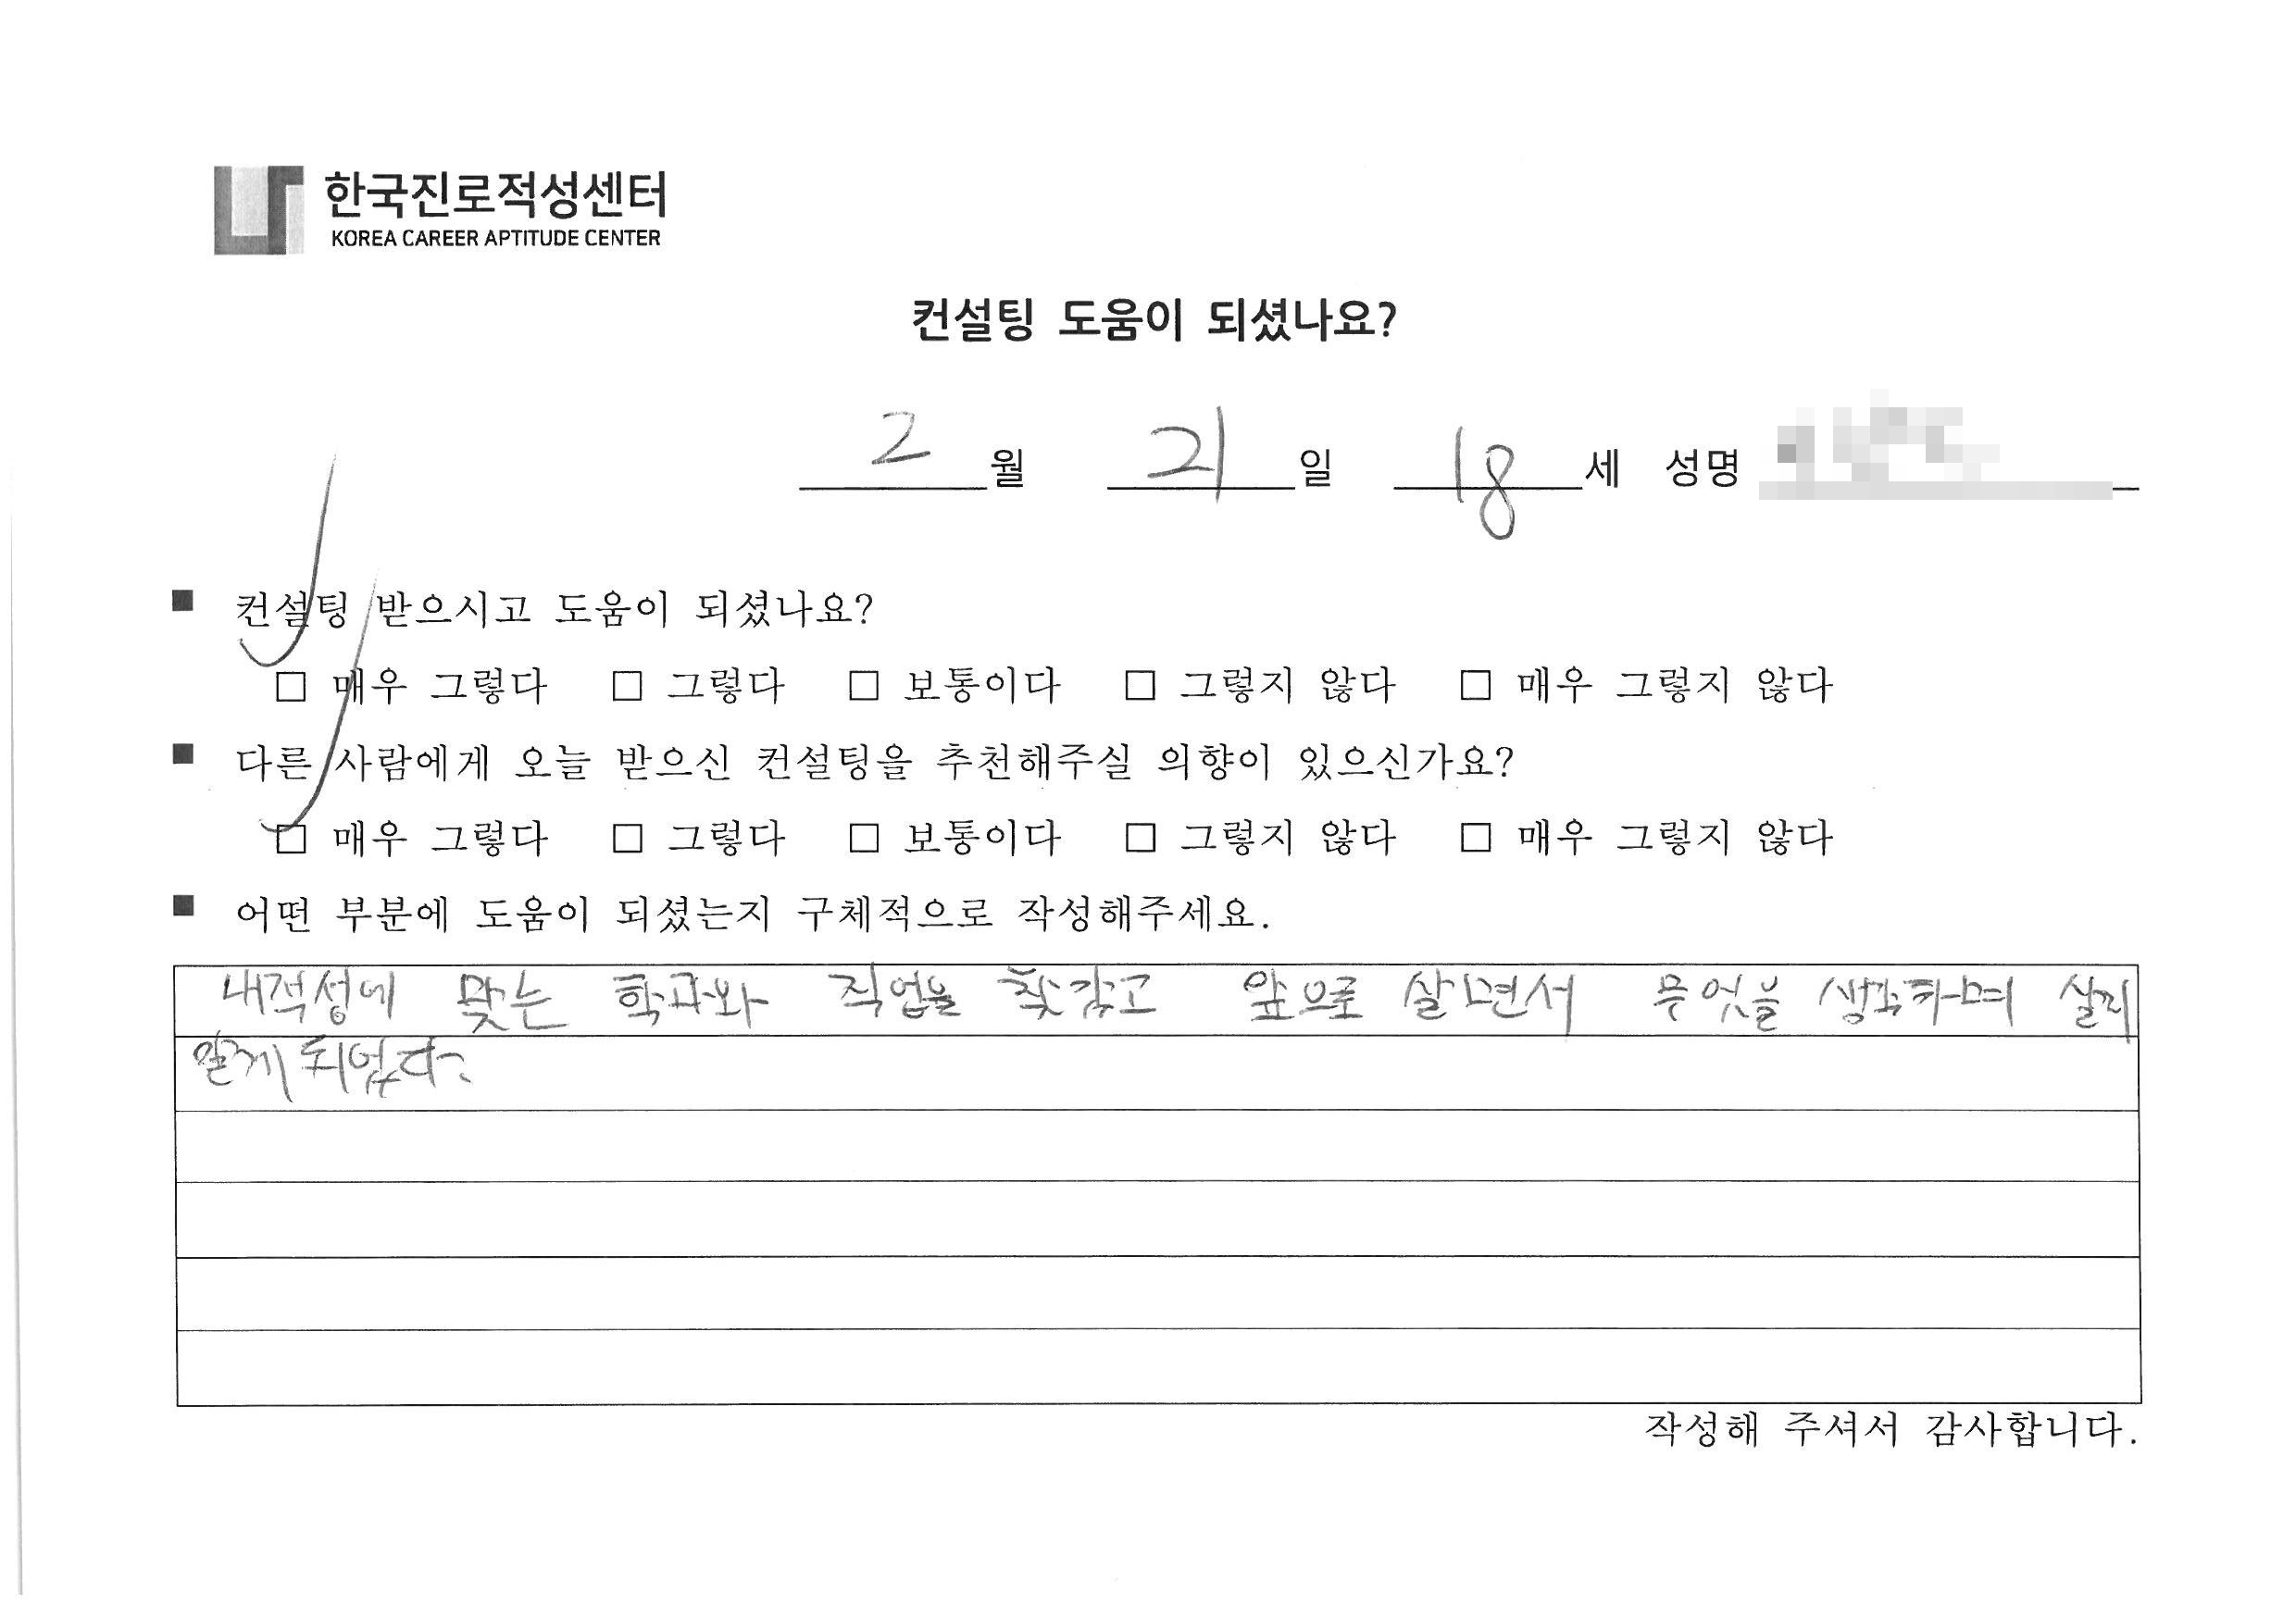 한국진로적성센터
KOREA CAREER APTITUDE CENTER
컨설팅 도움이 되셨나요?
2 월 21 일 18 세 성명
■ 컨설팅 받으시고 도움이 되셨나요?
□ 매우 그렇다 □ 그렇다 □ 보통이다 □ 그렇지 않다 □ 매우 그렇지 않다
■ 다른 사람에게 오늘 받으신 컨설팅을 추천해주실 의향이 있으신가요?
□ 매우 그렇다 □ 그렇다 □ 보통이다 □ 그렇지 않다 □ 매우 그렇지 않다
■ 어떤 부분에 도움이 되셨는지 구체적으로 작성해주세요.
내적성에 맞는 학과와 직업을 앞으로 살면서 무엇을 생각하며 살지
알게 되었다.
작성해 주셔서 감사합니다.